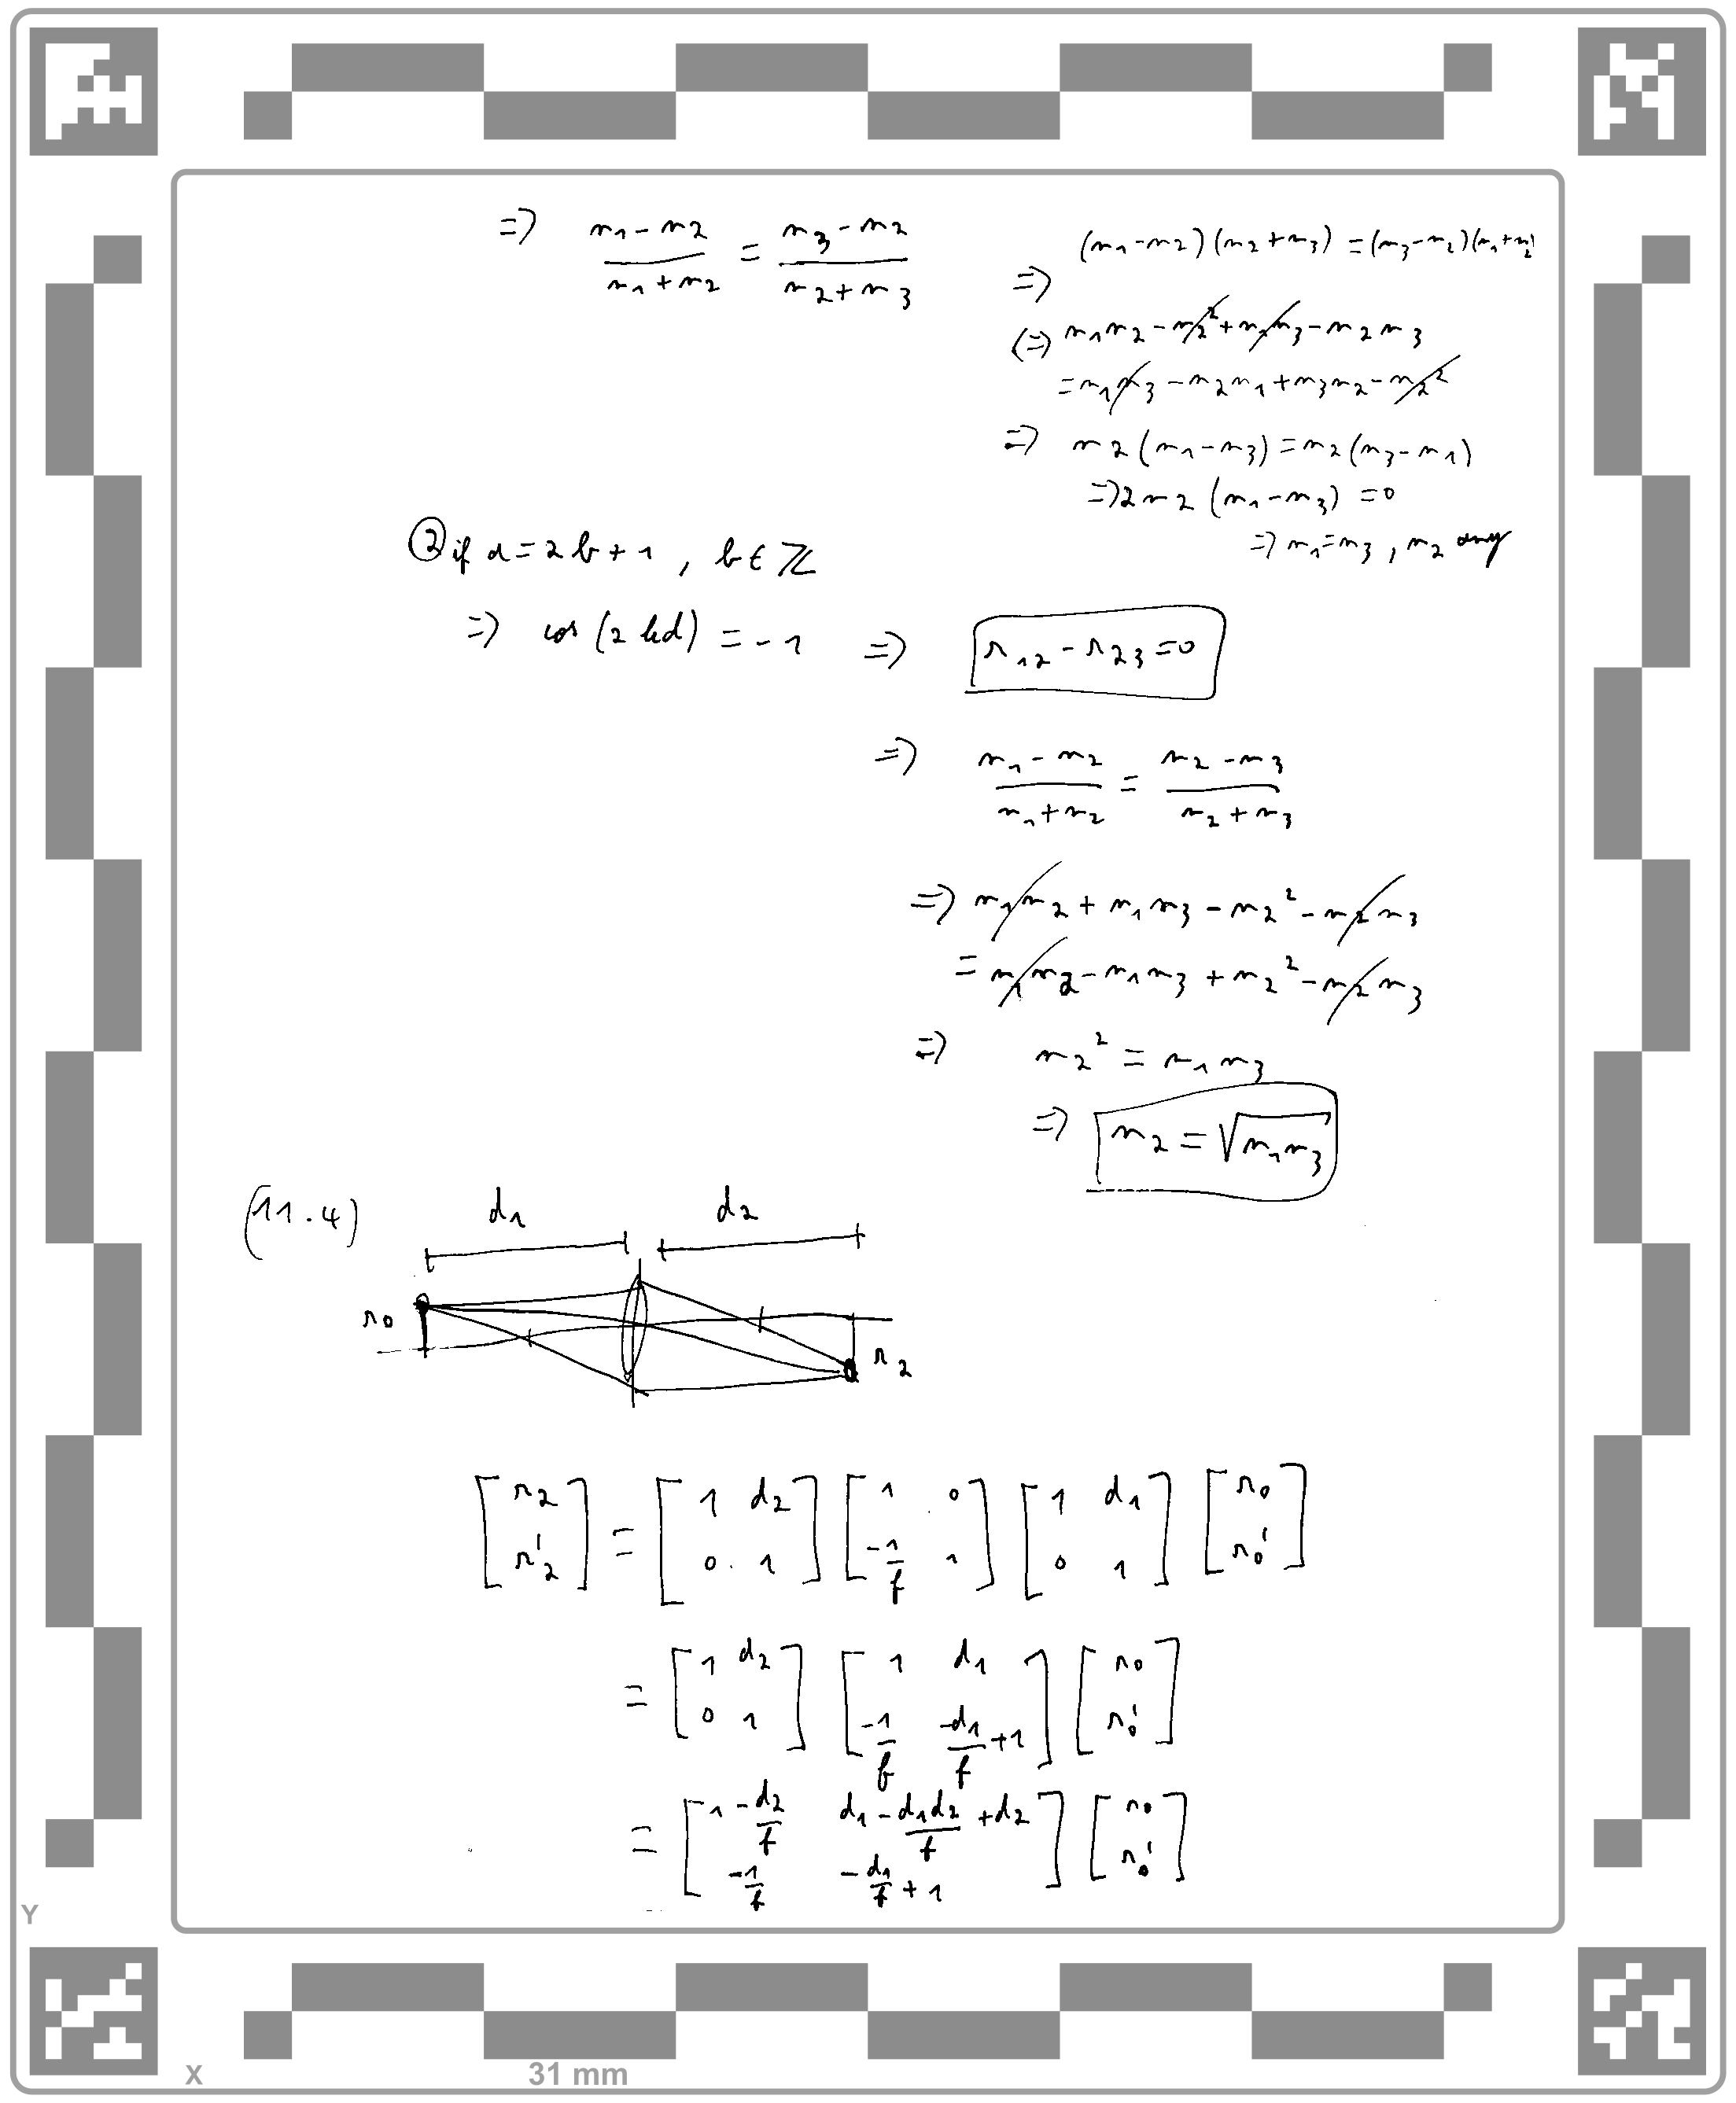 => (n1 - n2)/(n1 + n2) = (n3 - n2)/(n2 + n3)
=> (n1 - n2)(n2 + n3) = (n3 - n2)(n1 + n2)
(=> n1n2 - n2² + n1n3 - n2n3
= n1n3 - n2n1 + n3n2 - n2²
=> n2(n1 - n3) = n2(n3 - n1)
=> 2n2(n1 - n3) = 0
=> n1 = n3, n2 any
② if a = 2b + 1, b ∈ ℤ
=> cos(2kd) = -1 => r12 - r23 = 0
=> (n1 - n2)/(n1 + n2) = (n2 - n3)/(n2 + n3)
=> n1n2 + n1n3 - n2² - n2n3
= n1n2 - n1n3 + n2² - n2n3
=> n2² = n1n3
=> n2 = √(n1n3)
(11.4)
d1 d2
r0
r2
[r2; r2'] = [1 d2; 0 1] [1 0; -1/f 1] [1 d1; 0 1] [r0; r0']
= [1 d2; 0 1] [1 d1; -1/f -d1/f + 1] [r0; r0']
= [1 - d2/f d1 - d1d2/f + d2; -1/f -d1/f + 1] [r0; r0']
Y
X 31 mm